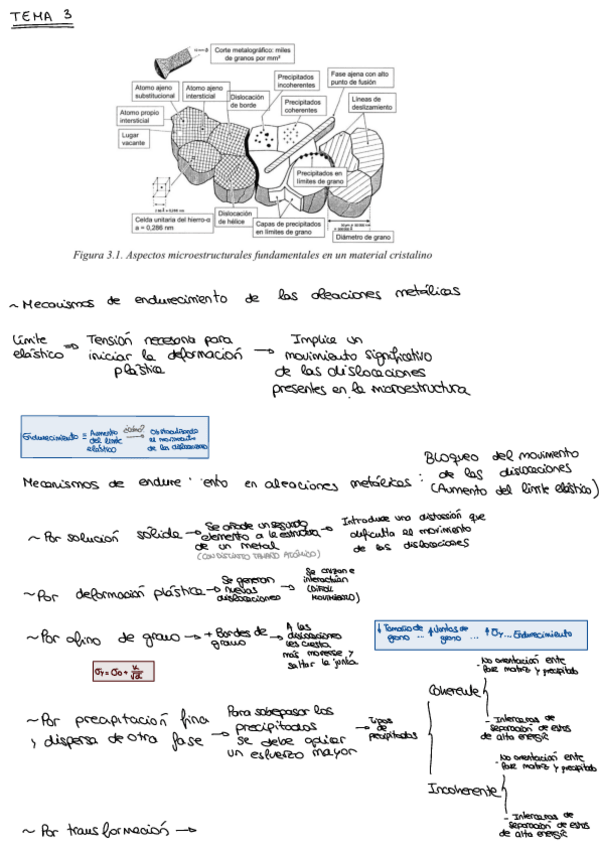 TEMA 3
Corte metalográfico: miles
de granos por mm²
Atomo ajeno
substitucional
Atomo ajeno
intersticial
Dislocación
de borde
Precipitados
incoherentes
Precipitados
coherentes
Fase ajena con alto
punto de fusión
Líneas de
deslizamiento
Atomo propio
intersticial
Lugar
vacante
Precipitados en
límites de grano
Celda unitaria del hierro-α
a = 0,286 nm
Dislocación
de hélice
Capas de precipitados
en límites de grano
Diámetro de grano
Figura 3.1. Aspectos microestructurales fundamentales en un material cristalino
~ Mecanismos de endurecimiento de las aleaciones metálicas
Límite
elástico ⇒ Tensión necesaria para
iniciar la deformación
plástica
→ Implica un
movimiento significativo
de las dislocaciones
presentes en la microestructura
Endurecimiento = Aumento
del límite
elástico
¿cómo?
→ Obstaculizando
el movimiento
de las dislocaciones
Mecanismos de endure ento en aleaciones metálicas:
Bloqueo del movimiento
de las dislocaciones
(Aumento del límite elástico)
~ Por solución sólida → Se añade un segundo
elemento a la estructura
de un metal
(CON DISTINTO TAMAÑO ATÓMICO)
→ Introduce una distorsión que
dificulta el movimiento
de las dislocaciones
~ Por deformación plástica → Se generan
nuevas
dislocaciones
→ Se cruzan e
interactúan
(DIFÍCIL
MOVIMIENTO)
~ Por afino de grano → + Bordes de
grano
→ A las
dislocaciones
les cuesta
más moverse y
saltar la junta
↓ Tamaño de
grano ... ↑ Juntas de
grano ... ↑ σy ... Endurecimiento
σy = σ0 + k/√d
~ Por precipitación fina
y dispersa de otra fase → Para sobrepasar los
precipitados
se debe aplicar
un esfuerzo mayor
→ Tipos
de
precipitados
Coherente
- No orientación ente
fase matriz y precipitado
- Intercaras de
separación de estos
de alta energía
Incoherente
- No orientación ente
fase matriz y precipitado
- Intercaras de
separación de estos
de alta energía
~ Por transformación →